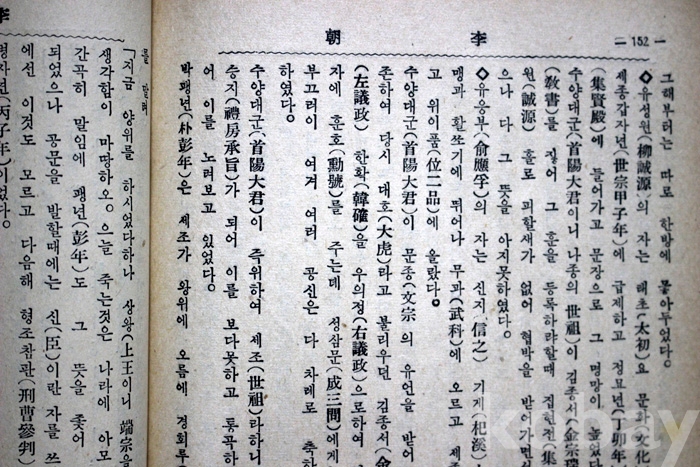 李朝
— 152 —
그해부터는 따로 한방에 몰아두었다.
◇유성원(柳誠源)의 자는 태초(太初)요 문화(文化
세종갑자년(世宗甲子年)에 급제하고 정묘년(丁卯年
(集賢殿)에 들어가고 문장으로 그 명망이 높았다
수양대군(首陽大君)이니 나종의 世祖)이 김종서(金宗瑞
(敎書)를 짛어 그 훈을 등록하랴할때 집현전(集
원(誠源) 홀로 피할새가 없어 협박을 받어가면서
으나 다 그 뜻을 아지못하였다。
◇유응부(兪應孚)의 자는 신지(信之) 기계(杞溪)
맹과 활쏘기에 뛰어나 무과(武科)에 오르고 세종
고 위이품(位二品)에 올랐다。
수양대군(首陽大君)이 문종(文宗)의 유언을 받어
존하여 당시 대호(大虎)라고 불리우던 김종서(金
(左議政) 한확(韓確)을 우의정(右議政)으로하여
자에 훈호(勳號)를 주는데 성삼문(成三問)에게
부끄러이 여겨 여러 공신은 다 차례로 축하
하였다。
수양대군(首陽大君)이 즉위하여 세조(世祖)라하니
승지(禮房承旨)가 되어 이를 보다못하고 통곡하
어 이를 노려보고 있었다。
박팽년(朴彭年)은 세조가 왕위에 오름에 경회루
李
를
「지금 양위를 하시었다하나 상왕(上王이니 端宗을
생각함이 마땅하오。오늘 죽는것은 나라에 아모
간곡히 말임에 팽년(彭年)도 그 뜻을 좇어
되었으나 공문을 발할때에는 신(臣)이란 자를 쓰
에선 이것도 모르고 다음해 형조참판(刑曹參判)
병자년(丙子年)이었다。